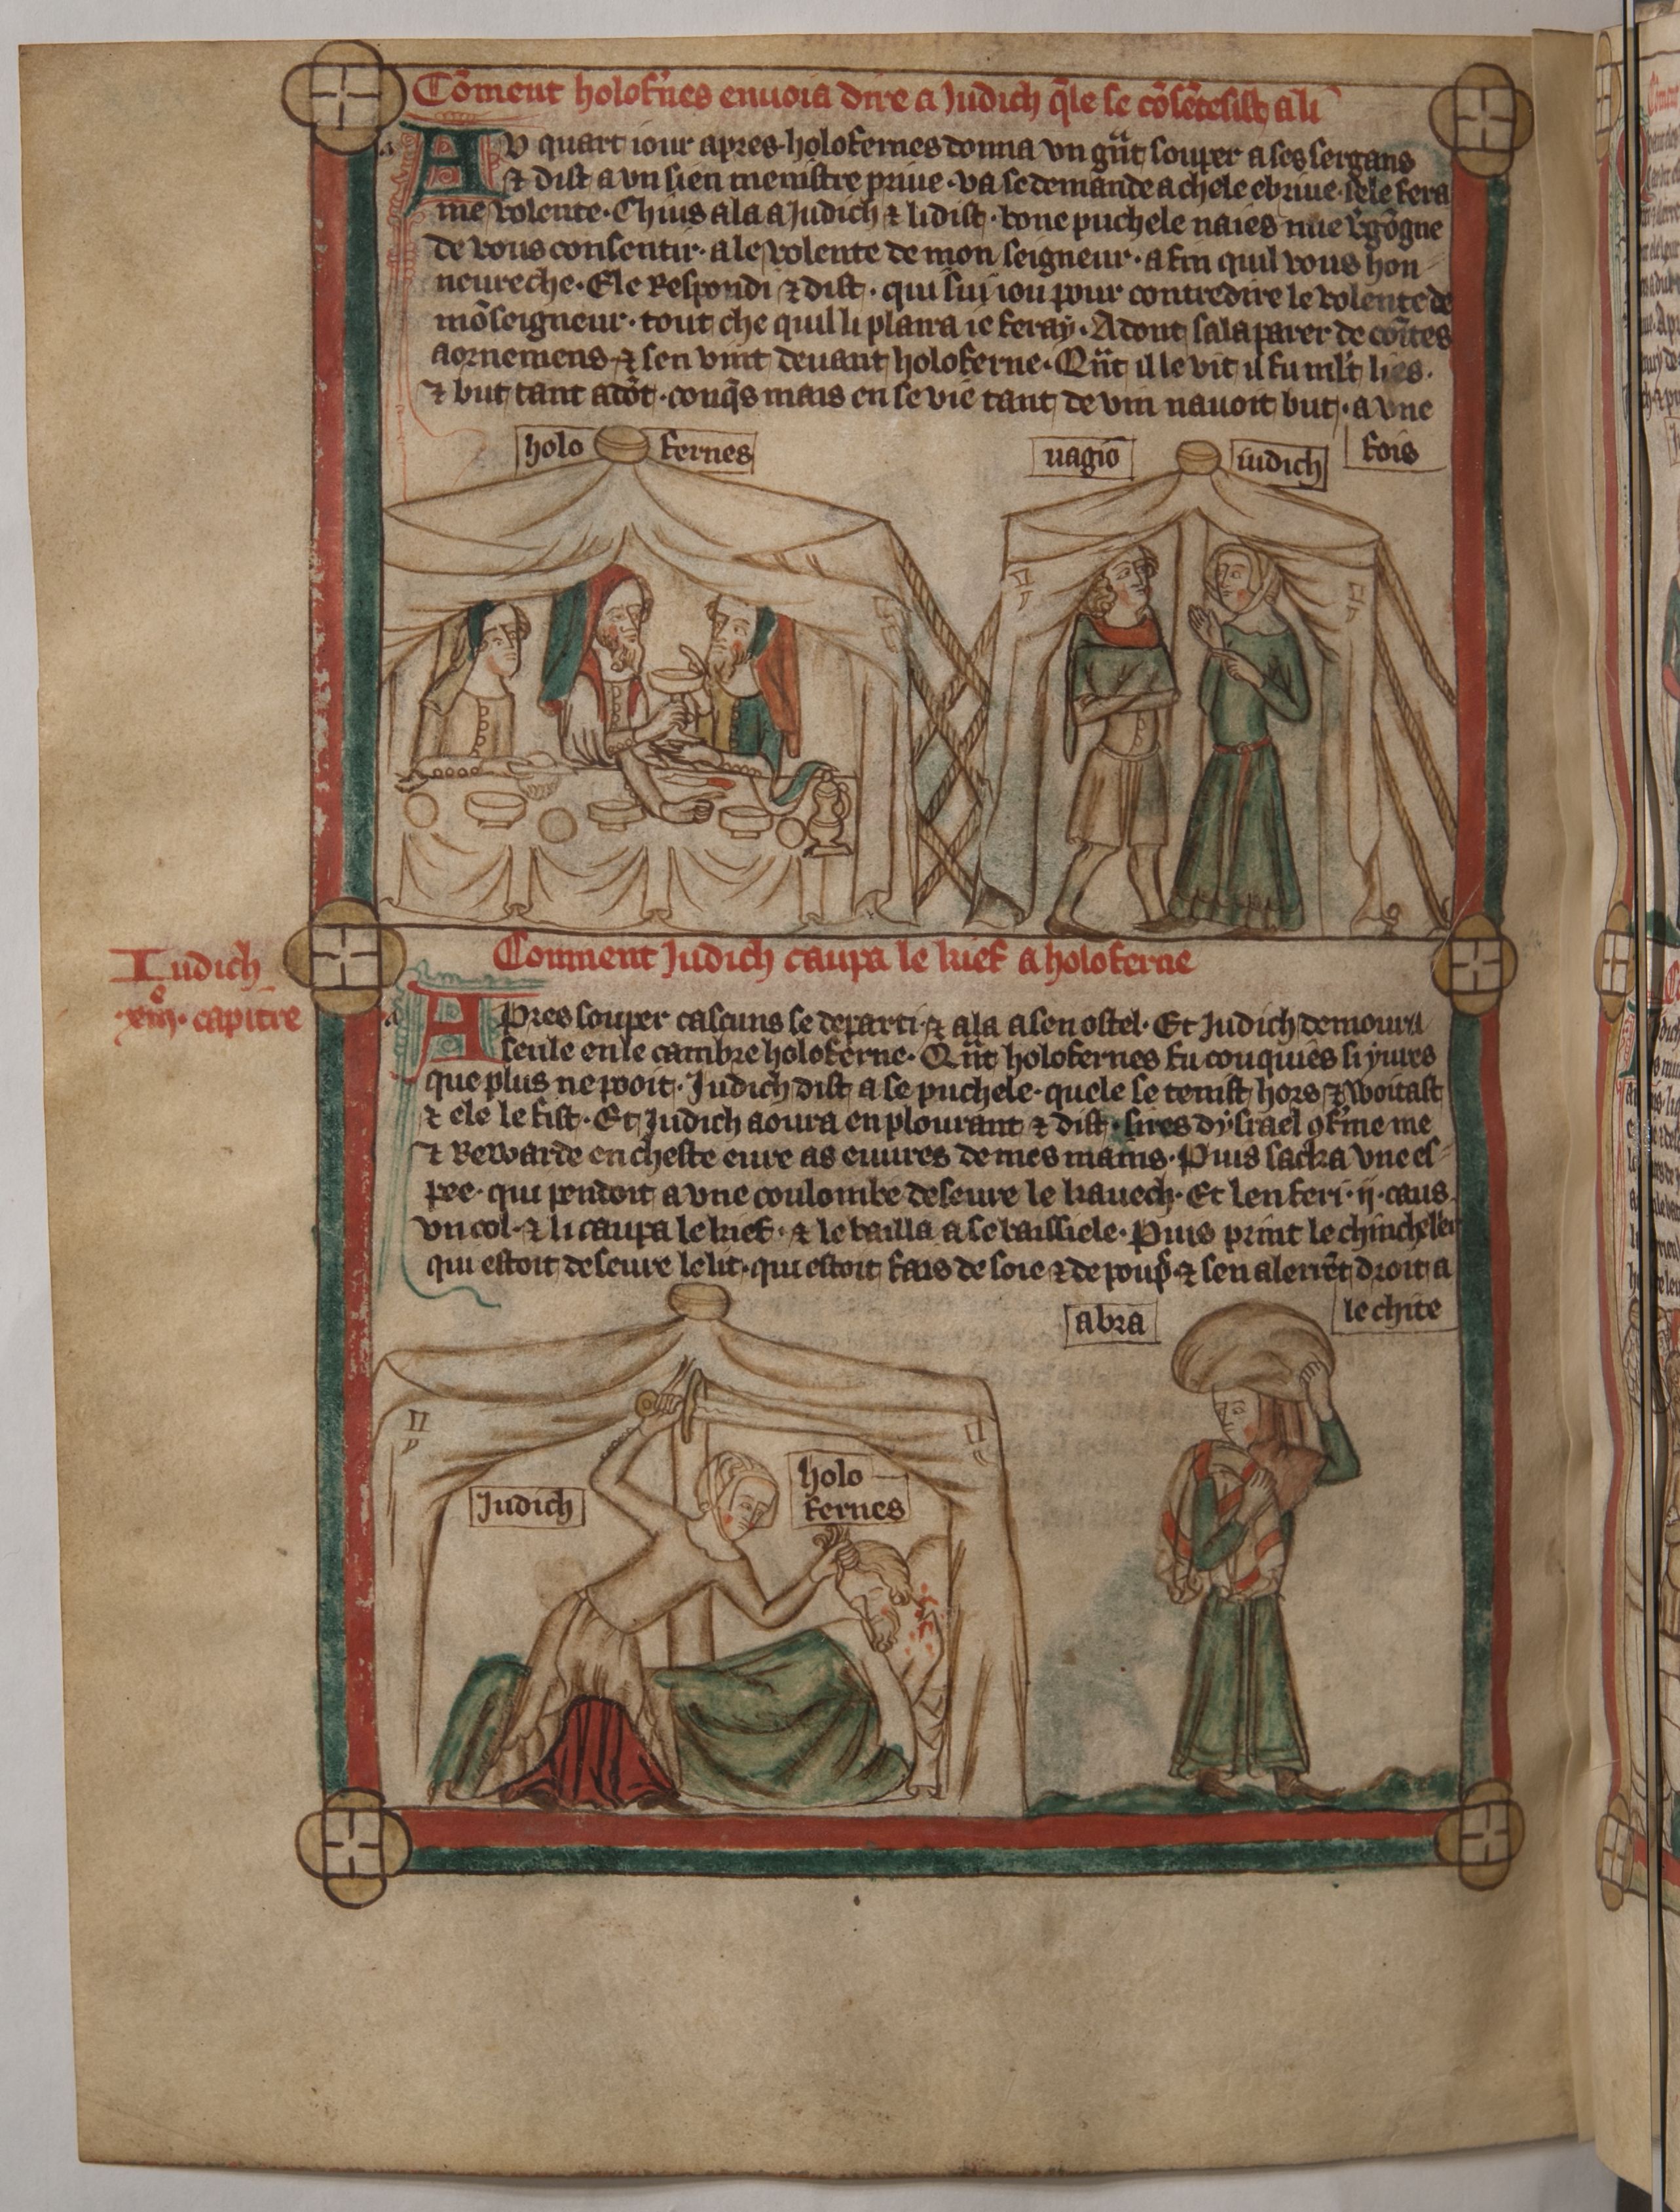 Cōment holofn̄es enuoia dire a Judich q̄le se cōsētesist a li
AV quart iour apres·holofernes donna vn gñt souper a ses sergans
⁊ dist a vn sien menistre priue·va se demande a chele ebriue·sele fera
me volente·Chius ala a Judich ⁊ li dist·bone puchele naies mie v̄gōgne
de vous consentir·a le volente de mon seigneur·a fin quil vous hon
neureche·Ele Respondi ⁊ dist·qui sui iou pour contredire le volente de
mōseigneur·tout che quil li plaira ie feray·Adont sala parer de cōtes
aornemens ⁊ sen vint deuant holoferne·Qñt il le vit il fu ml't lies·
⁊ but tant adōt·conq̄s mais en se vie tant de vin nauoit but·a vne
fois
holo fernes
uagio
iudich
Judich
xiij·e capitre
Comment Judich caupa le kief a holoferne
APres souper cascuns se departi ⁊ ala a sen ostel·Et Judich demoura
seule en le cambre holoferne·Qñt holofernes fu couquies si yures
que plus ne pooit·Judich dist a se puchele·quele se tenist hors ⁊ Woitast
⁊ ele le fist·Et Judich aoura en plourant ⁊ dist·sires dysrael 9fme me
⁊ Rewarde en cheste eure as euures de mes mains·Puis sacka vne es-
pee·qui pendoit a vne coulombe deseure le kauech·Et len feri·ij·caus
vn col·⁊ li caupa le kief·⁊ le bailla a se baissiele·Puis print le chincheler
qui estoit deseure le lit·qui estoit fais de soie ⁊ de poup̄·⁊ sen alerēt droit a
le chite
abra
Judich
holo
fernes